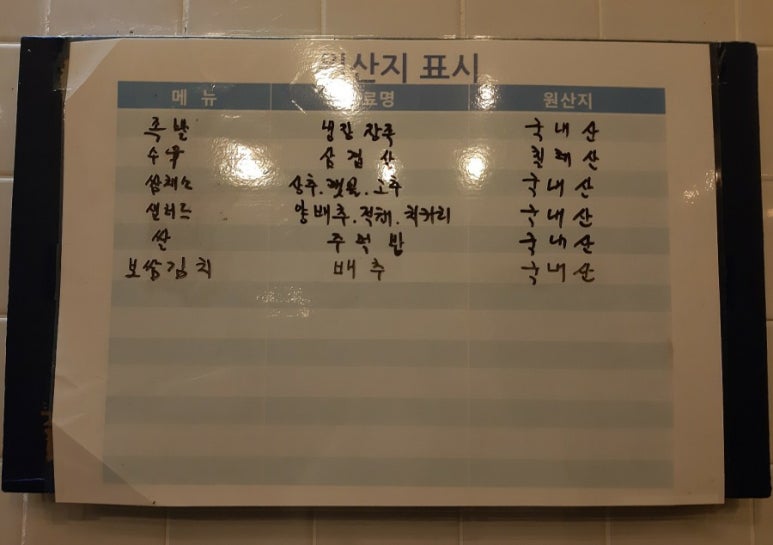 원산지 표시
메 뉴 재료명 원산지
족발 냉장 장족 국내산
수육 삼겹살 칠레산
쌈채소 상추.깻잎.고추 국내산
샐러드 양배추.적채.치커리 국내산
쌀 주먹밥 국내산
보쌈김치 배추 국내산